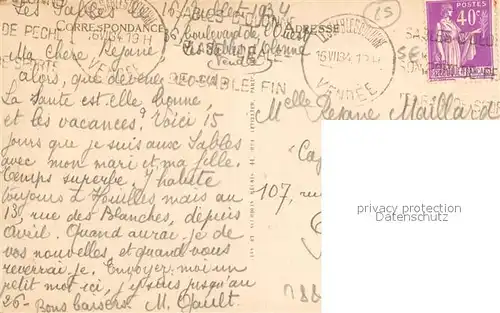 Les Sables le 16 Juillet 1934
CORRESPONDANCE
ADRESSE
boulevard de l'Ouest
Les Sables d'Olonne
Vendée
Ma chère Rejane,
alors, que devenez
La Santé est elle bonne,
et les vacances? Voici 15
jours que je suis aux Sables
avec mon mari et ma fille.
Temps superbe. J'habite
toujours à Houilles mais au
13, rue des Blanches, depuis
Avril. Quand aurai je de
vos nouvelles, et quand vous
reverrai je. Envoyez moi un
petit mot ici, j'y suis jusqu'au
26 - Bons baisers M. Gault.
Melle Rejane Maillard
107, rue
VENDÉE
16 VII 34
VENDÉE
SABLE FIN
40c
privacy protection
Datenschutz